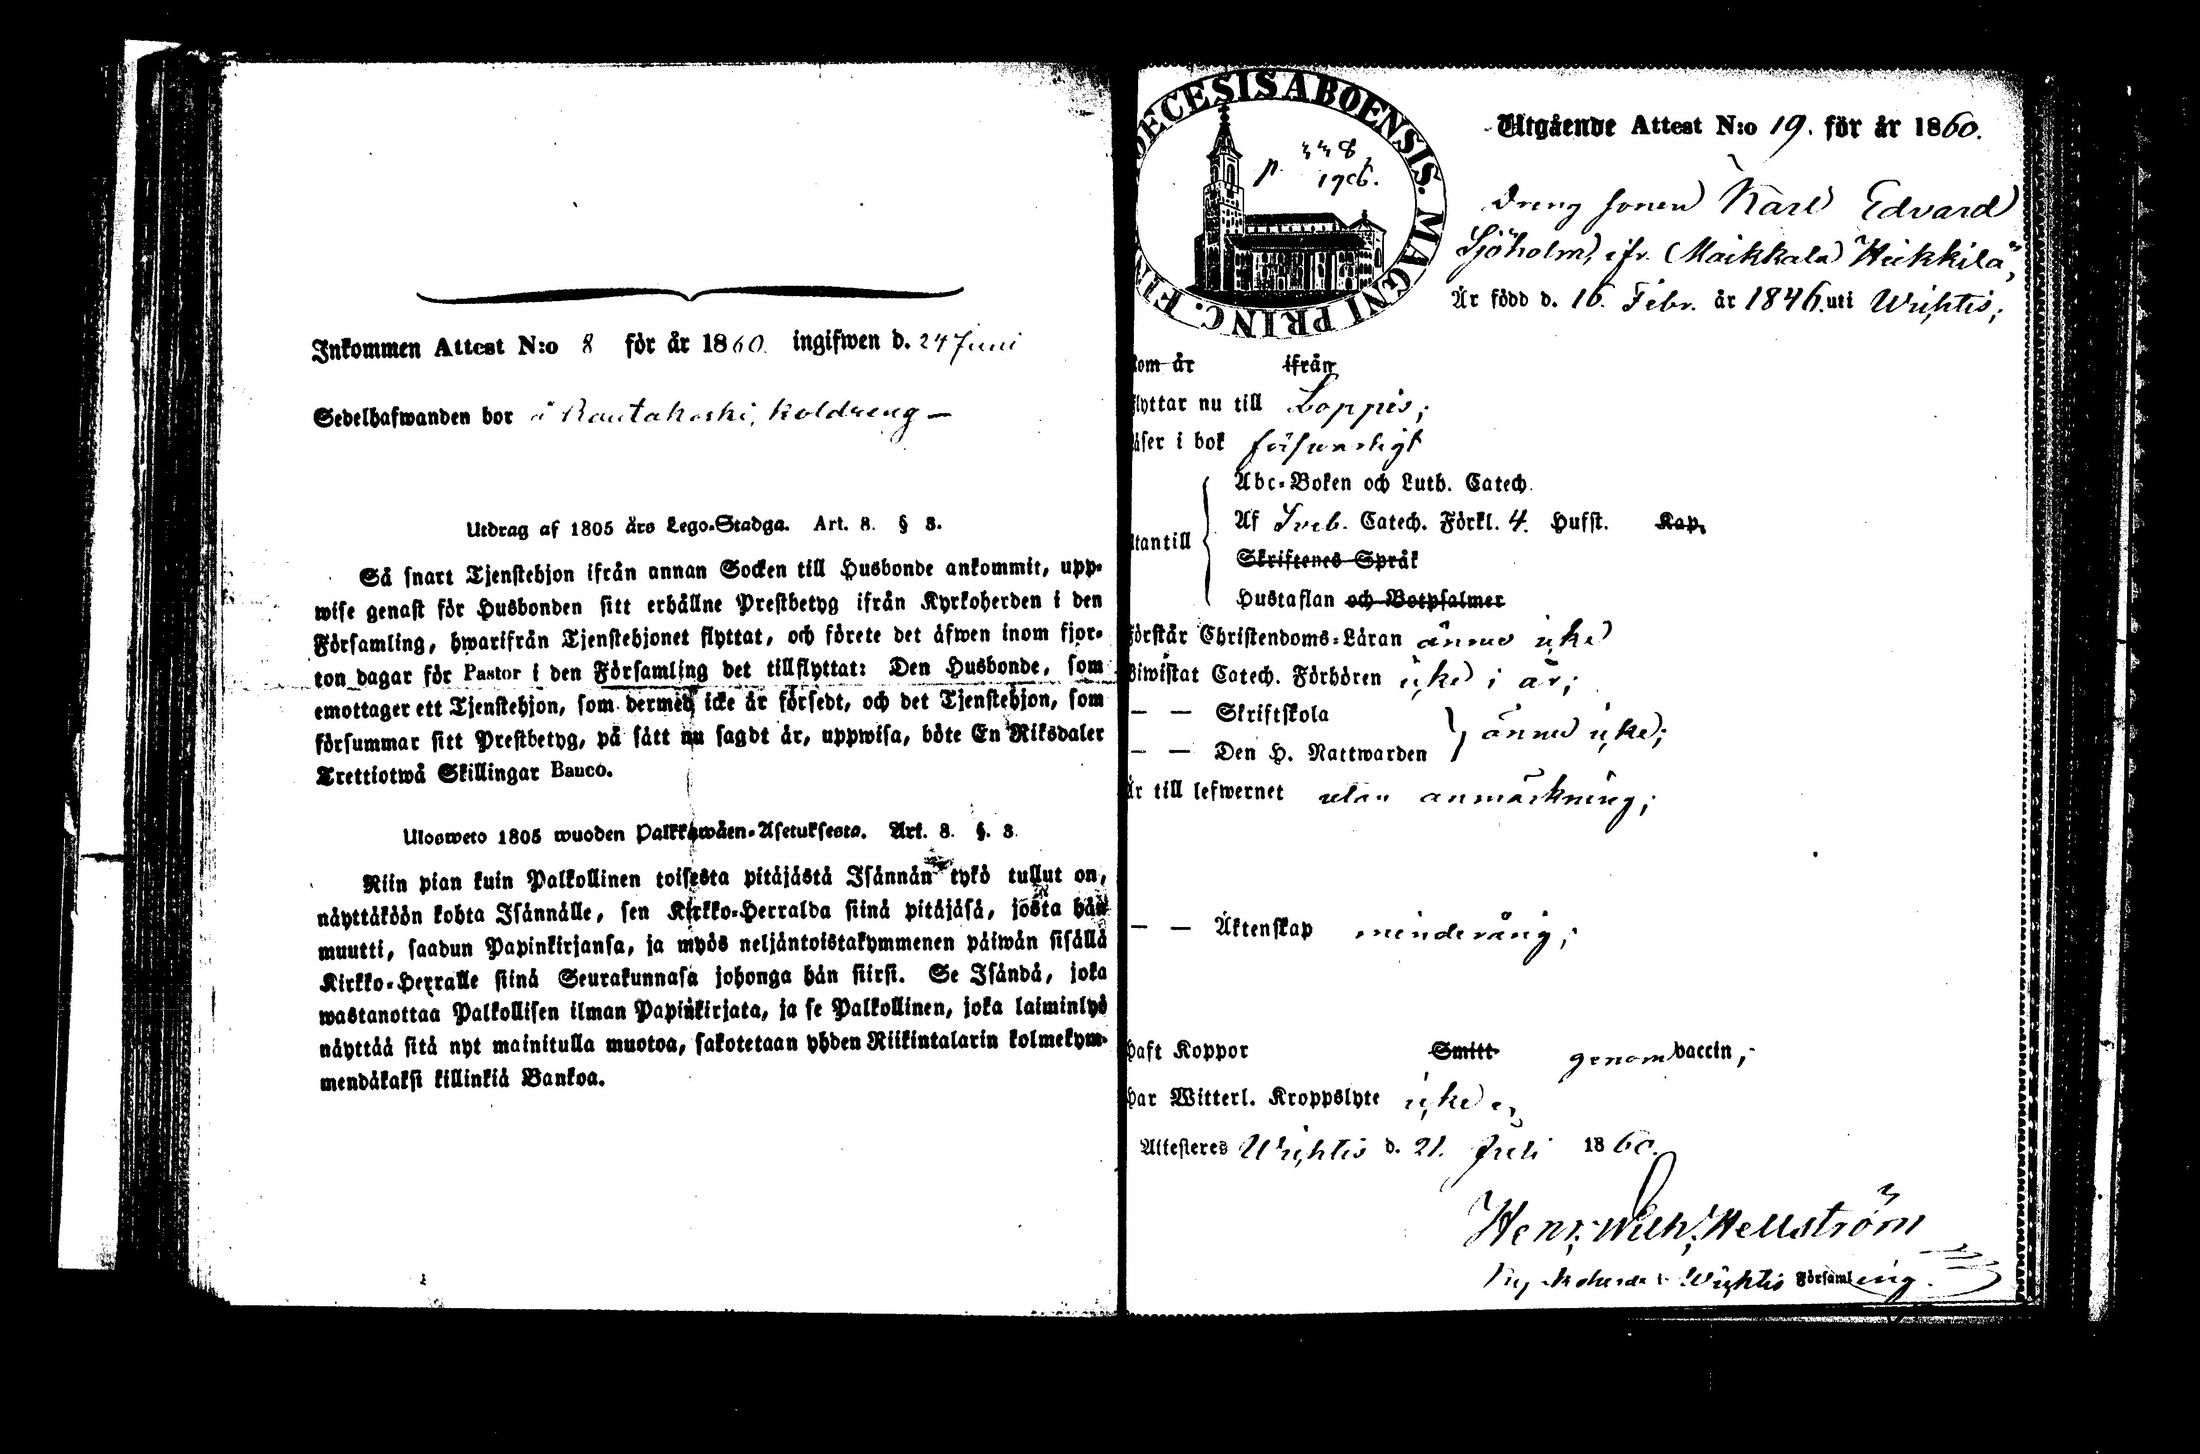 Inkommen Attest N:o 8 för år 1860. ingifwen d. 24 Juni
Sedelhafwanden bor å Rautakoski, koldreng —
Utdrag af 1805 års Lego-Stadga. Art. 8. § 3.
Så snart Tjenstehjon ifrån annan Socken till Husbonde ankommit, upp-
wise genast för Husbonden sitt erhållne Prestbetyg ifrån Kyrkoherden i den
Församling, hwarifrån Tjenstehjonet flyttat, och förete det äfwen inom fjor-
ton dagar för Pastor i den Församling det tillflyttat: Den Husbonde, som
emottager ett Tjenstehjon, som dermed icke är försedt, och det Tjenstehjon, som
försummar sitt Prestbetyg, på sätt nu sagdt är, uppwisa, böte En Riksdaler
Trettiotwå Skillingar Banco.
Ulosweto 1805 wuoden Palkkawäen-Asetuksesta. Art. 8. §. 3.
Niin pian kuin Palkollinen toisesta pitäjästä Isännän tykö tullut on,
näyttäköön kohta Isännälle, sen Kirkko-Herralda siinä pitäjäsä, josta hän
muutti, saadun Papinkirjansa, ja myös neljäntoistakymmenen päiwän sisällä
Kirkko-Herralle siinä Seurakunnasa johonga hän siirsi. Se Isändä, joka
wastanottaa Palkollisen ilman Papinkirjata, ja se Palkollinen, joka laiminlyö
näyttää sitä nyt mainitulla muotoa, sakotetaan yhden Riikintalarin kolmekym-
mendäkaksi killinkiä Bankoa.
DECESIS ABOENSIS. MAGNI PRINC. FIN
p. 338
1906.
Utgående Attest N:o 19. för år 1860.
Dreng sonen Karl Edvard
Sjöholm, ifr. Maikkala Heikkilä,
Är född d. 16. Febr. år 1846. uti Wichtis;
kom år ifrån
flyttar nu till Loppis;
läser i bok försvarligt
Abc-Boken och Luth. Catech.
utantill Af Sveb. Catech. Förkl. 4. Hufst. Kap.
Skriftenes Språk
Hustaflan och Botpsalmer
förstår Christendoms-Läran ännu icke
Biwistat Catech. Förhören icke i år;
— — Skriftskola
ännu icke;
— — Den H. Nattwarden
Är till lefwernet utan anmärkning;
— — Äktenskap minderårig;
haft Koppor Smitt genom vaccin;
har Witterl. Kroppslyte icke
Attesteres Wichtis d. 21. Juli 1860.
Henr. Wilh. Hellström
Kyrkoherde i Wichtis Församling.